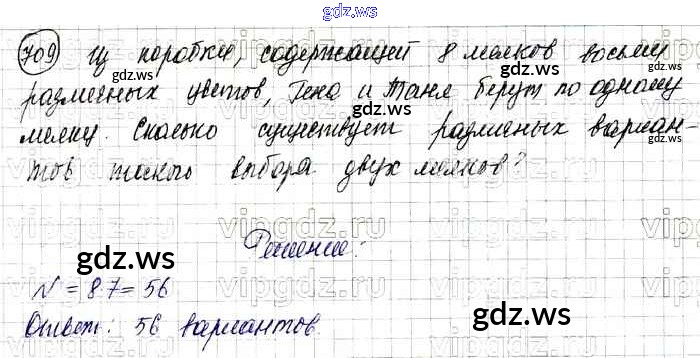 gdz.ws
709 Из коробки, содержащей 8 мелков восьми
gdz.ws gdz.ws
различных цветов, Гена и Таня берут по одному
мелку. Сколько существует различных вариан-
gdz.ws gdz.ws
тов такого выбора двух мелков?
vipgdz.ru vipgdz.ru vipgdz.ru
Решение:
gdz.ws gdz.ws
N = 8·7 = 56
Ответ: 56 вариантов.
gdz.ws gdz.ws